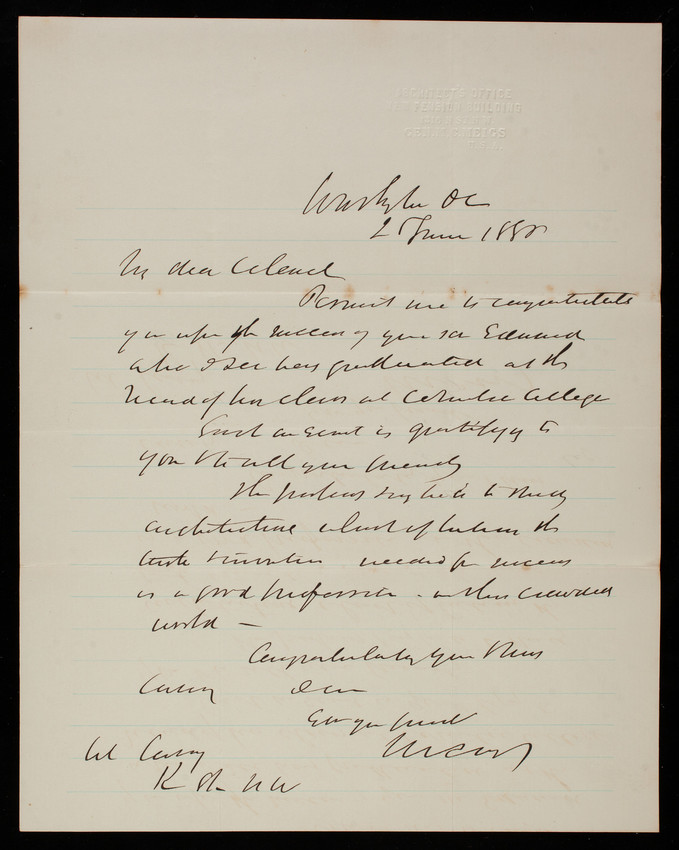 ARCHITECT'S OFFICE
NEW PENSION BUILDING
GEN. M. C. MEIGS
U.S.A.
Washington DC
2 June 188
My dear Colonel
Permit me to congratulate
you upon the success of your son Edward
who I see has graduated at the
head of his class at Columbia College
Such an event is gratifying to
you & to all your friends
The professor says he is to study
architecture which if he have the
taste & invention needed for success
is a good profession in this crowded
world —
Congratulating you & Mrs
Casey I am
Ever your friend
M C Meigs
Col Casey
K St NW